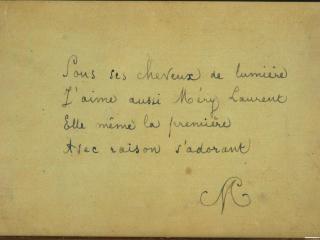 Sous ses cheveux de lumière
J'aime aussi Méry Laurent
Elle même la première
Avec raison s'adorant